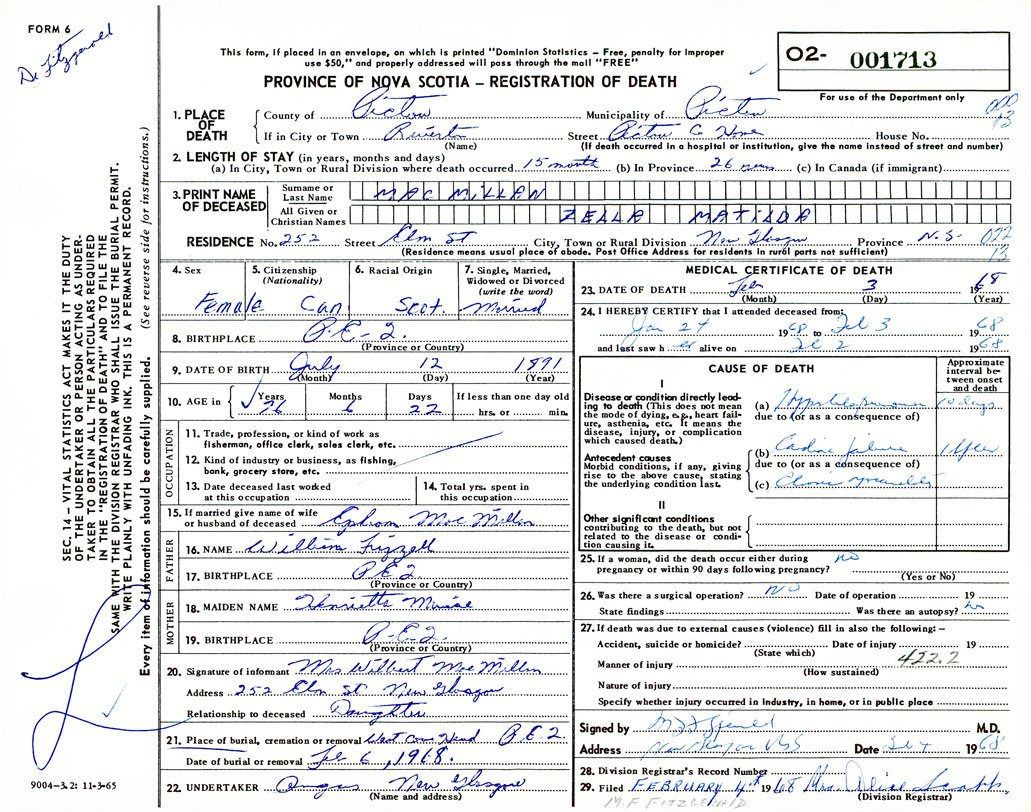 FORM 6
De Fitzgerald
This form, if placed in an envelope, on which is printed "Dominion Statistics – Free, penalty for improper
use $50," and properly addressed will pass through the mail "FREE"
O2- 001713
PROVINCE OF NOVA SCOTIA – REGISTRATION OF DEATH
For use of the Department only
1. PLACE OF DEATH
County of Pictou Municipality of Pictou
If in City or Town Riverton Street Pictou C Home House No.
(Name) (If death occurred in a hospital or institution, give the name instead of street and number)
2. LENGTH OF STAY (in years, months and days)
(a) In City, Town or Rural Division where death occurred 15 month (b) In Province 26 years (c) In Canada (if immigrant)
3. PRINT NAME OF DECEASED
Surname or Last Name MAC MILLAN
All Given or Christian Names ZELLA MATILDA
RESIDENCE No. 252 Street Elm St City, Town or Rural Division New Glasgow Province N.S.
(Residence means usual place of abode. Post Office Address for residents in rural parts not sufficient)
4. Sex Female
5. Citizenship (Nationality) Can
6. Racial Origin Scot.
7. Single, Married, Widowed or Divorced (write the word) Married
8. BIRTHPLACE P.E.I.
(Province or Country)
9. DATE OF BIRTH July 12 1891
(Month) (Day) (Year)
10. AGE in Years 76 Months 6 Days 22 If less than one day old hrs. or min.
OCCUPATION
11. Trade, profession, or kind of work as
fisherman, office clerk, sales clerk, etc.
12. Kind of industry or business, as fishing,
bank, grocery store, etc.
13. Date deceased last worked
at this occupation
14. Total yrs. spent in
this occupation
15. If married give name of wife
or husband of deceased Ephram MacMillan
FATHER
16. NAME William Frizzell
17. BIRTHPLACE P.E.I.
(Province or Country)
MOTHER
18. MAIDEN NAME Henrietta
19. BIRTHPLACE P.E.I.
(Province or Country)
20. Signature of informant Mrs Wilbert MacMillan
Address 252 Elm St New Glasgow
Relationship to deceased Daughter
21. Place of burial, cremation or removal West Cove Head P.E.I.
Date of burial or removal Feb 6, 1968.
22. UNDERTAKER Angus New Glasgow
(Name and address)
MEDICAL CERTIFICATE OF DEATH
23. DATE OF DEATH Feb 3 1968
(Month) (Day) (Year)
24. I HEREBY CERTIFY that I attended deceased from:
Jan 27 1968 to Feb 3 1968
and last saw h er alive on Feb 2 1968
CAUSE OF DEATH
Approximate interval between onset and death
I
Disease or condition directly leading to death (This does not
mean the mode of dying, e.g., heart failure, asthenia, etc. It means the
disease, injury, or complication
which caused death.)
(a) 10 days
due to (or as a consequence of)
Antecedent causes
Morbid conditions, if any, giving
rise to the above cause, stating
the underlying condition last.
(b) Cardiac failure
due to (or as a consequence of)
(c)
II
Other significant conditions
contributing to the death, but not
related to the disease or condition
causing it.
25. If a woman, did the death occur either during
pregnancy or within 90 days following pregnancy? no
(Yes or No)
26. Was there a surgical operation? NO Date of operation 19
State findings Was there an autopsy? no
27. If death was due to external causes (violence) fill in also the following: –
Accident, suicide or homicide? Date of injury 19
(State which)
422.2
Manner of injury
(How sustained)
Nature of injury
Specify whether injury occurred in Industry, in home, or in public place
Signed by M.D.
Address Date Feb 4 1968
28. Division Registrar's Record Number
29. Filed FEBRUARY 4th 1968 Mrs. Aline
(Division Registrar)
M.F. FITZGERALD
SEC. 14 – VITAL STATISTICS ACT MAKES IT THE DUTY
OF THE UNDERTAKER OR PERSON ACTING AS UNDERTAKER
TO OBTAIN ALL THE PARTICULARS REQUIRED
IN THE "REGISTRATION OF DEATH" AND TO FILE THE
SAME WITH THE DIVISION REGISTRAR WHO SHALL ISSUE THE BURIAL PERMIT.
WRITE PLAINLY WITH UNFADING INK. THIS IS A PERMANENT RECORD.
Every item of information should be carefully supplied. (See reverse side for instructions.)
9004–3.2: 11-3-65